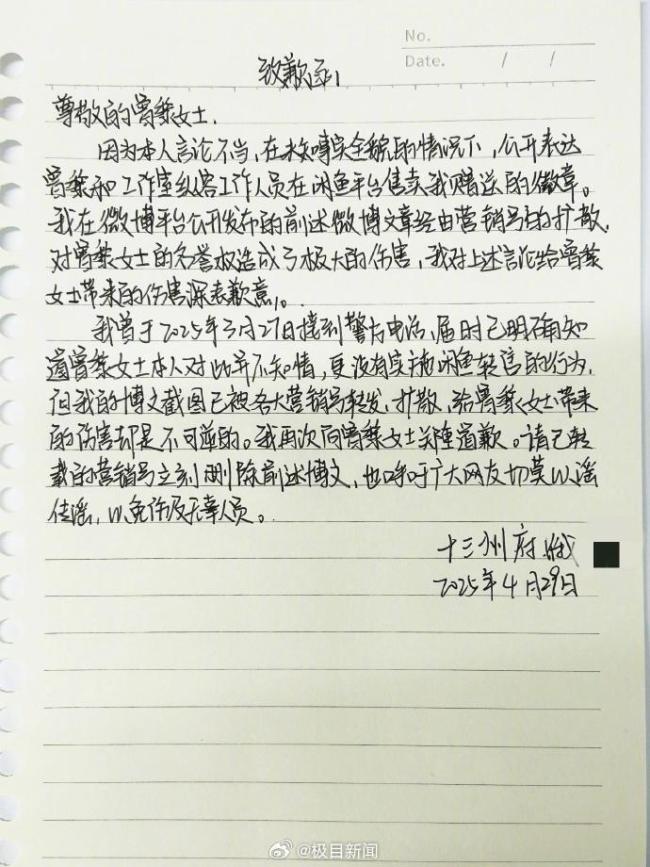 No.
Date. / /
致歉函
尊敬的曾黎女士:
因为本人言论不当,在未知事实全貌的情况下,公开表达
曾黎和工作室纵容工作人员在闲鱼平台售卖我赠送的徽章。
我在微博平台公开发布的前述微博文章经由营销号的扩散,
对曾黎女士的名誉权造成了极大的伤害,我对上述言论给曾黎
女士带来的伤害深表歉意。
我曾于2025年3月27日接到警方电话,届时已明确知
道曾黎女士本人对此并不知情,更没有实施闲鱼转售的行为,
但我的博文截图已被各大营销号转发、扩散,给曾黎女士带来
的伤害却是不可逆的。我再次向曾黎女士郑重道歉。请已转
载的营销号立刻删除前述博文,也呼吁广大网友切莫以谣
传谣,以免伤及无辜人员。
十三州府
2025年4月29日
@极目新闻